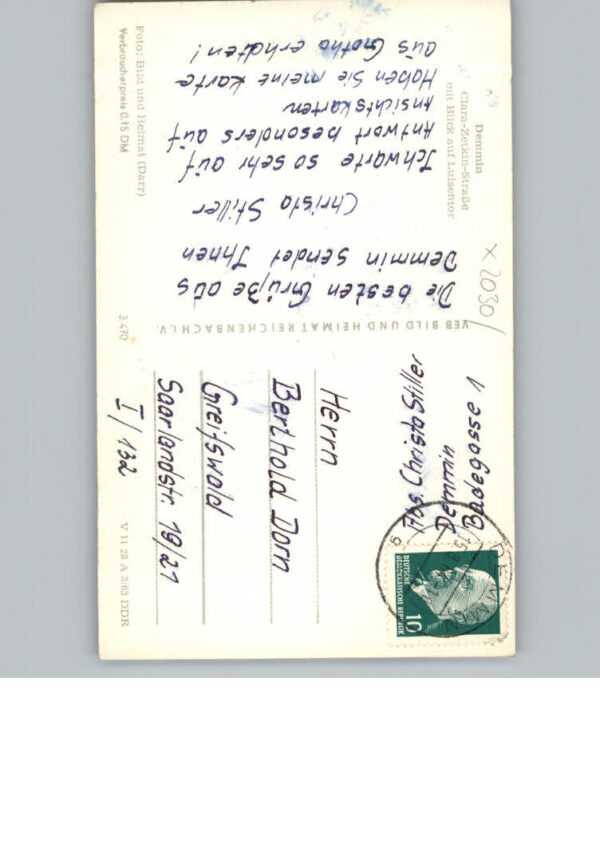 Demmin
Clara-Zetkin-Straße
mit Blick auf Luisentor
Die besten Grüße aus
Demmin sendet Ihnen
Christa Stiller
Ich warte so sehr auf
Antwort besonders auf
Ansichtskarten
Haben Sie meine Karte
aus Gotha erhalten!
Foto: Bild und Heimat (Darr)
Verbraucherpreis 0,15 DM
x 2030/
VEB BILD UND HEIMAT REICHENBACH I. V.
3.470
Abs. Christa Stiller
Demmin
Badegasse 1
DEUTSCHE
DEMOKRATISCHE REPUBLIK
10
DEMMIN
Herrn
Berthold Dorn
Greifswald
Saarlandstr. 19/21
I/132
V 11 28 A 3/63 DDR